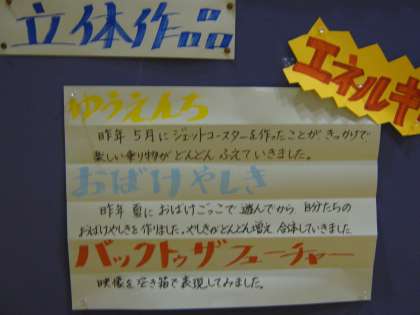 立体作品
エネルギ
ゆうえんち
昨年5月にジェットコースターを作ったことがきっかけで
楽しい乗り物がどんどんふえていきました。
おばけやしき
昨年夏におばけごっこで遊んでから自分たちの
おばけやしきを作りました。やしきがどんどん増え合体していきました
バックトゥザフューチャー
映像を空き箱で表現してみました。